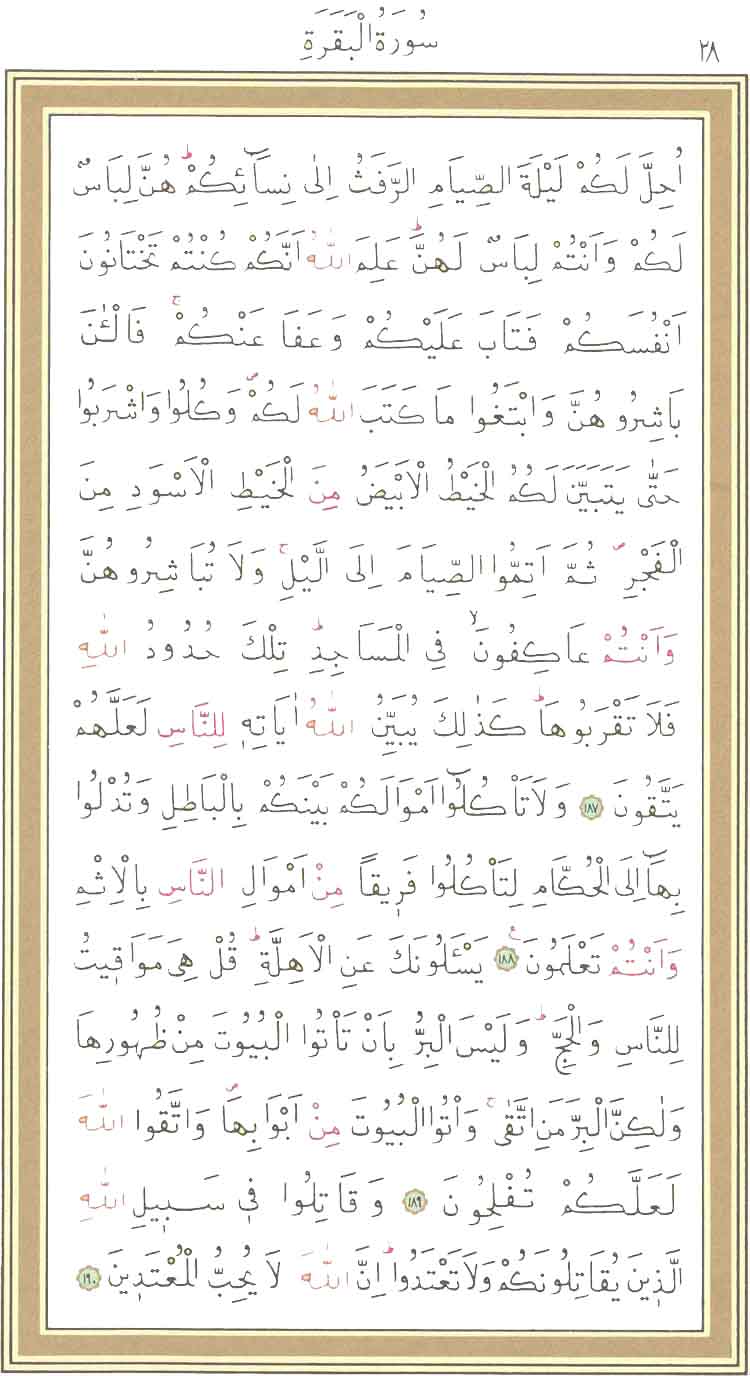 ٢٨
سُورَةُ الْبَقَرَةِ
اُحِلَّ لَكُمْ لَيْلَةَ الصِّيَامِ الرَّفَثُ اِلٰى نِسَٓائِكُمْۜ هُنَّ لِبَاسٌ
لَكُمْ وَاَنْتُمْ لِبَاسٌ لَهُنَّۜ عَلِمَ اللّٰهُ اَنَّكُمْ كُنْتُمْ تَخْتَانُونَ
اَنْفُسَكُمْ فَتَابَ عَلَيْكُمْ وَعَفَا عَنْكُمْۚ فَالْـٰٔنَ
بَاشِرُوهُنَّ وَابْتَغُوا مَا كَتَبَ اللّٰهُ لَكُمْۖ وَكُلُوا وَاشْرَبُوا
حَتّٰى يَتَبَيَّنَ لَكُمُ الْخَيْطُ الْاَبْيَضُ مِنَ الْخَيْطِ الْاَسْوَدِ مِنَ
الْفَجْرِۖ ثُمَّ اَتِمُّوا الصِّيَامَ اِلَى الَّيْلِۚ وَلَا تُبَاشِرُوهُنَّ
وَاَنْتُمْ عَاكِفُونَۙ فِي الْمَسَاجِدِۜ تِلْكَ حُدُودُ اللّٰهِ
فَلَا تَقْرَبُوهَاۜ كَذٰلِكَ يُبَيِّنُ اللّٰهُ اٰيَاتِهٖ لِلنَّاسِ لَعَلَّهُمْ
يَتَّقُونَ ﴿١٨٧﴾ وَلَا تَأْكُلُٓوا اَمْوَالَكُمْ بَيْنَكُمْ بِالْبَاطِلِ وَتُدْلُوا
بِهَٓا اِلَى الْحُكَّامِ لِتَأْكُلُوا فَرِيقًا مِنْ اَمْوَالِ النَّاسِ بِالْاِثْمِ
وَاَنْتُمْ تَعْلَمُونَ۟ ﴿١٨٨﴾ يَسْـَٔلُونَكَ عَنِ الْاَهِلَّةِۜ قُلْ هِيَ مَوَاقِيتُ
لِلنَّاسِ وَالْحَجِّۜ وَلَيْسَ الْبِرُّ بِاَنْ تَأْتُوا الْبُيُوتَ مِنْ ظُهُورِهَا
وَلٰكِنَّ الْبِرَّ مَنِ اتَّقٰىۚ وَأْتُوا الْبُيُوتَ مِنْ اَبْوَابِهَاۖ وَاتَّقُوا اللّٰهَ
لَعَلَّكُمْ تُفْلِحُونَ ﴿١٨٩﴾ وَقَاتِلُوا فِي سَبِيلِ اللّٰهِ
الَّذِينَ يُقَاتِلُونَكُمْ وَلَا تَعْتَدُواۜ اِنَّ اللّٰهَ لَا يُحِبُّ الْمُعْتَدِينَ ﴿١٩٠﴾